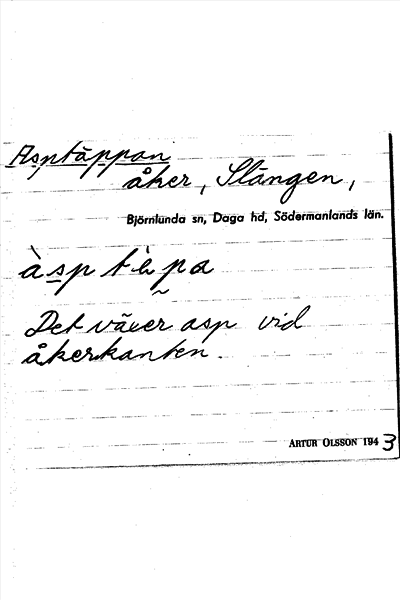 Asptäppan
åker, Slängen,
Björnlunda sn, Daga hd, Södermanlands län.
àsp tὲpa
Det växer asp vid
åkerkanten.
ARTUR OLSSON 1943